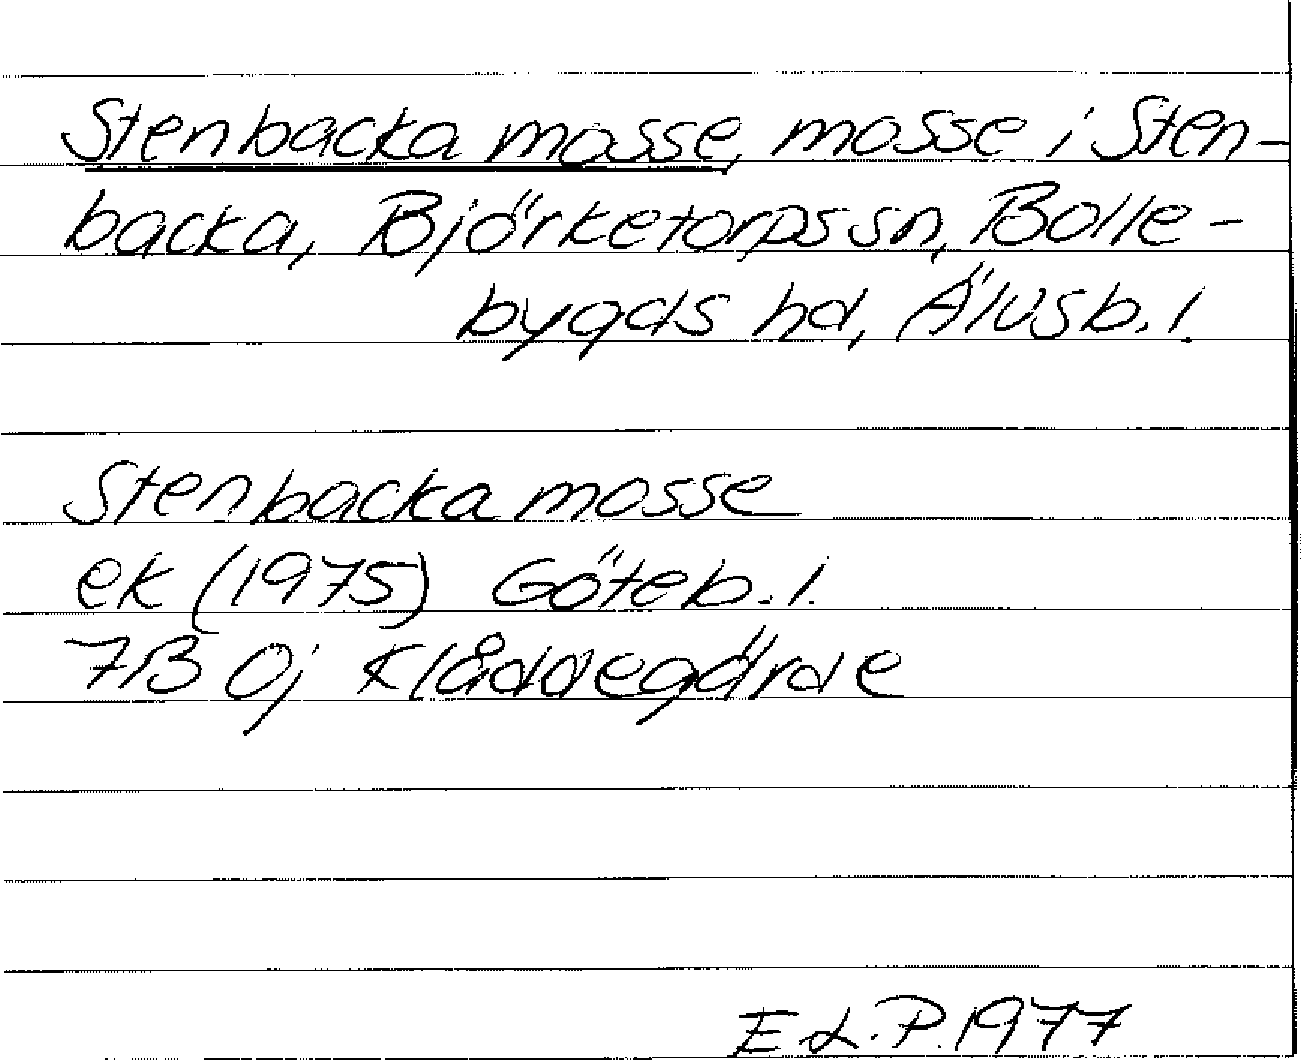 Stenbacka mosse, mosse i Sten-
backa, Björketorps sn, Bolle-
bygds hd, Älvsb. l.
Stenbacka mosse
ek (1975) Göteb. l.
7B 0j Klåddegärde
E L. P. 1977